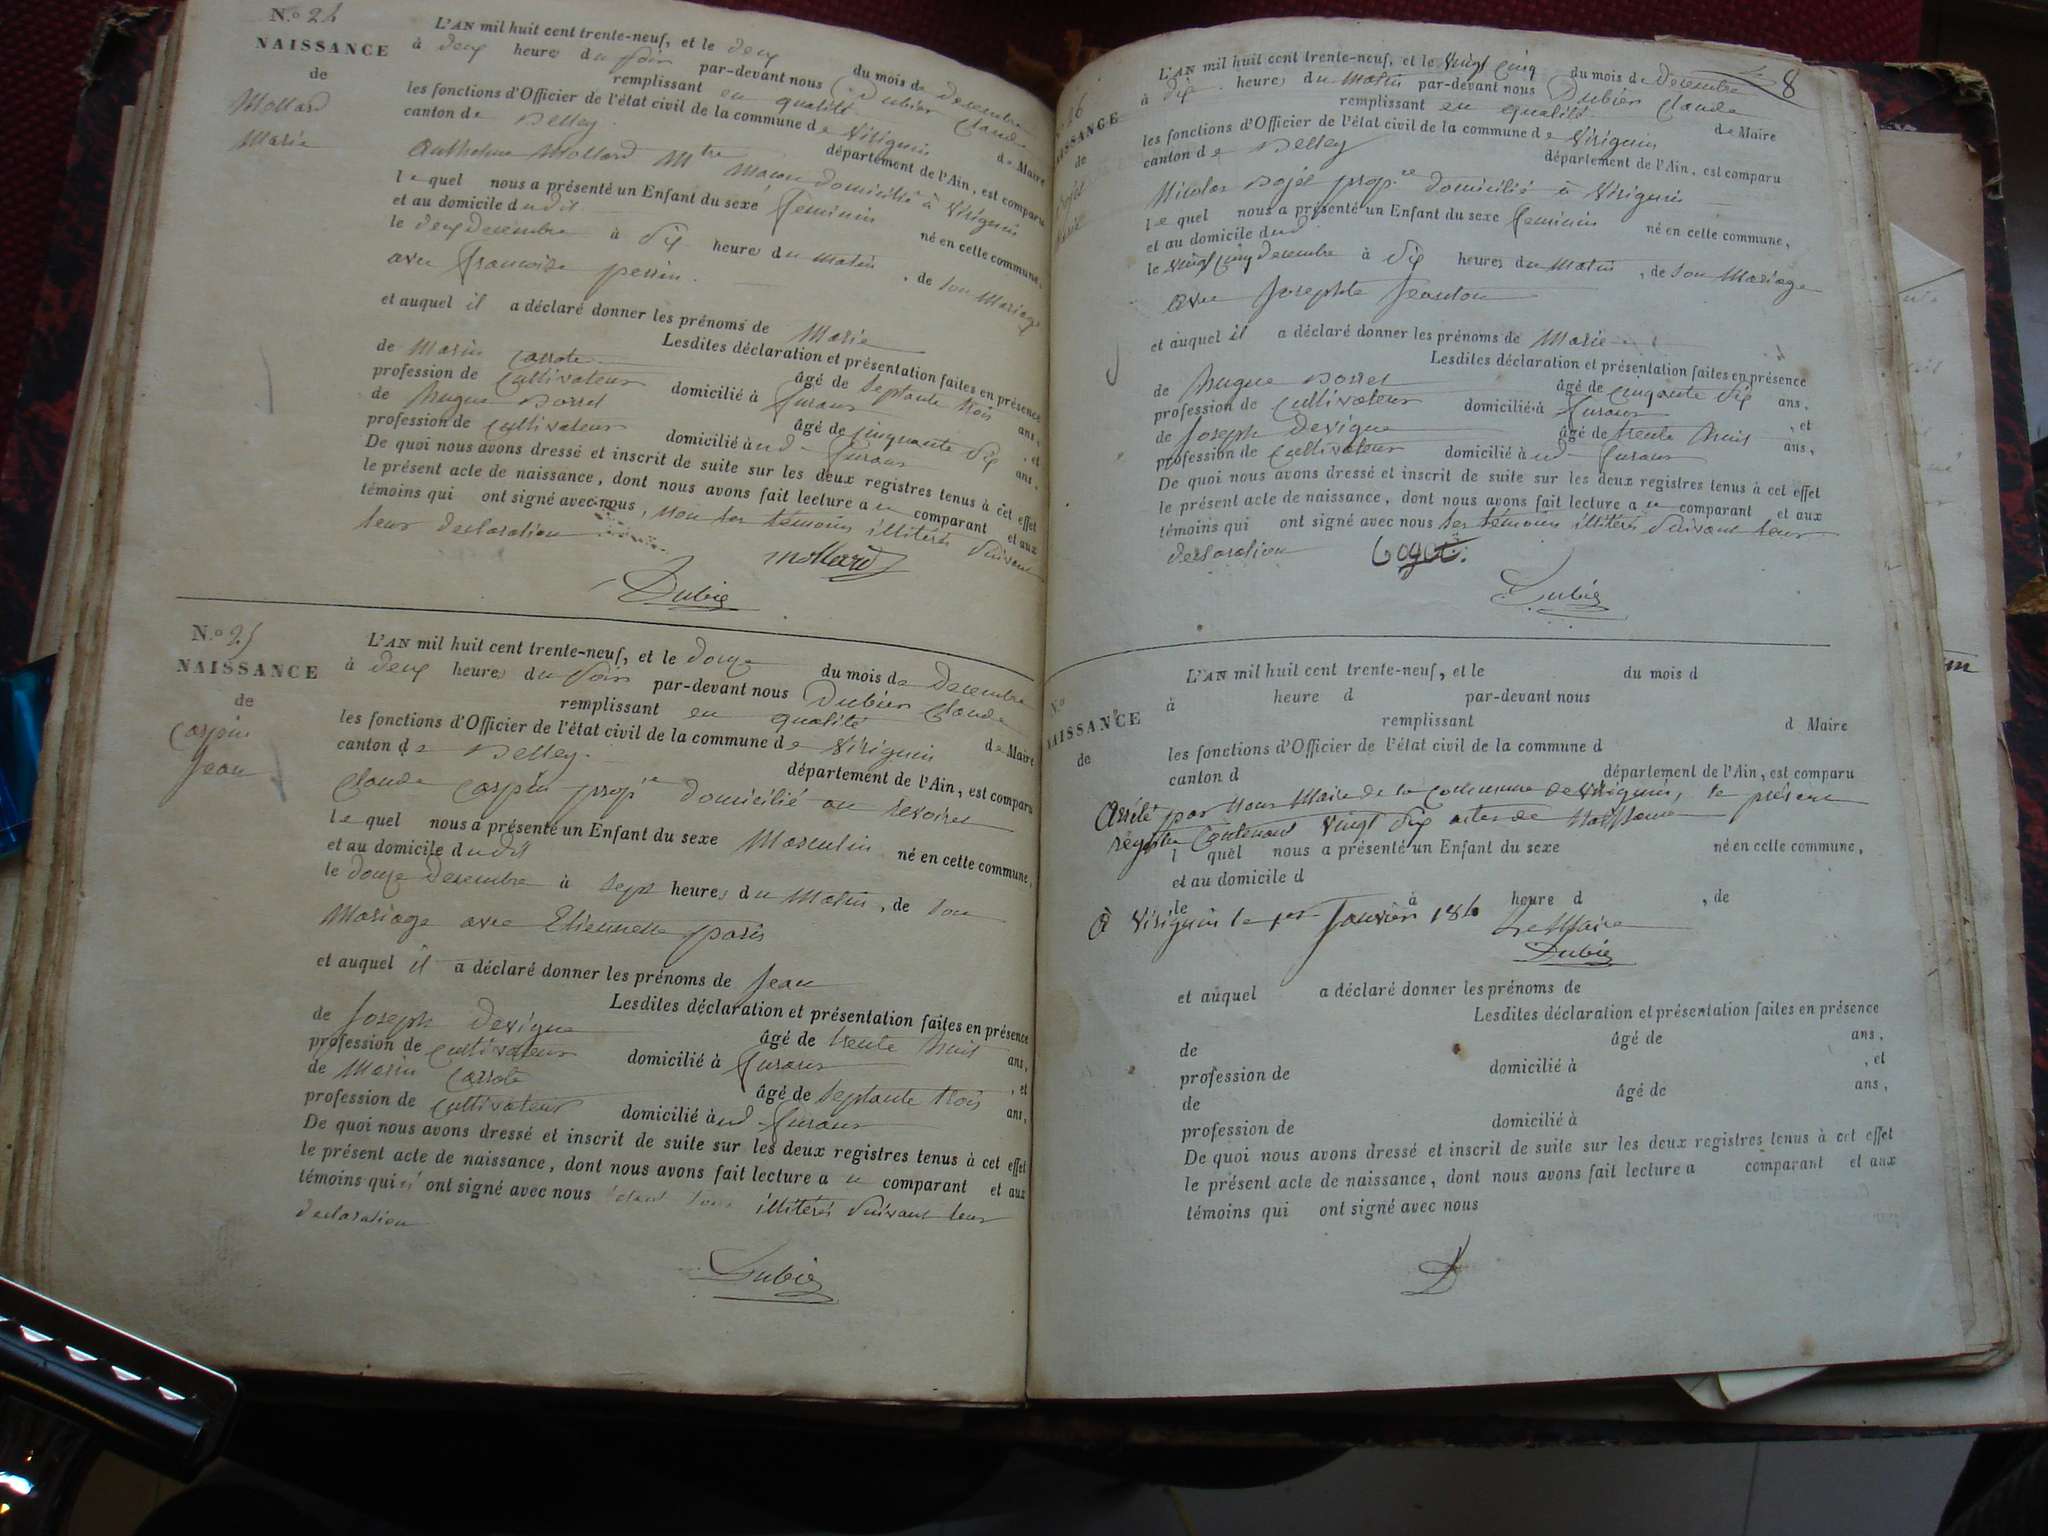 N.º 24
NAISSANCE
de
Mollard
Marie
L'AN mil huit cent trente-neuf, et le deux du mois de Decembre
à deux heures du soir par-devant nous Dubier Claude
remplissant en qualité de Maire
les fonctions d'Officier de l'état civil de la commune de Virignin
canton de Belley département de l'Ain, est comparu
Anthelme Mollard Mtre Macon domicilié à Virignin
lequel nous a présenté un Enfant du sexe feminin né en cette commune,
et au domicile dudit
le deux Decembre à dix heures du matin, de son Mariage
avec francoise perrin.
et auquel il a déclaré donner les prénoms de Marie
Lesdites déclaration et présentation faites en présence
de Marin Carrote âgé de septante trois ans,
profession de Cultivateur domicilié à furans, et
de hugue Borret âgé de cinquante dix ans,
profession de Cultivateur domicilié à ud furans
De quoi nous avons dressé et inscrit de suite sur les deux registres tenus à cet effet
le présent acte de naissance, dont nous avons fait lecture au comparant et aux
témoins qui ont signé avec nous, non les témoins illiterés suivant
leur declaration
Mollard
Dubier
N.º 25
NAISSANCE
de
Carpin
Jean
L'AN mil huit cent trente-neuf, et le douze du mois de Decembre
à deux heures du soir par-devant nous Dubier Claude
remplissant en qualité de Maire
les fonctions d'Officier de l'état civil de la commune de Virignin
canton de Belley. département de l'Ain, est comparu
Claude Carpin prop.re domicilié au
lequel nous a présenté un Enfant du sexe Masculin né en cette commune,
et au domicile dudit
le douze Decembre à sept heures du Matin, de son
Mariage avec Etiennette paris
et auquel il a déclaré donner les prénoms de Jean
Lesdites déclaration et présentation faites en présence
de Joseph Devigne âgé de trente huit ans,
profession de Cultivateur domicilié à furans, et
de Marin Carrote âgé de septante trois ans,
profession de Cultivateur domicilié à ud furans
De quoi nous avons dressé et inscrit de suite sur les deux registres tenus à cet effet
le présent acte de naissance, dont nous avons fait lecture au comparant et aux
témoins qui n'ont signé avec nous étant tous illiterés suivant leur
declaration
Dubier
8
26
NAISSANCE
de
L'AN mil huit cent trente-neuf, et le vingt cinq du mois de Decembre
à dix heures du matin par-devant nous Dubier Claude
remplissant en qualité de Maire
les fonctions d'Officier de l'état civil de la commune de Virignin
canton de Belley département de l'Ain, est comparu
Nicolas prop.re domicilié à Virignin
lequel nous a présenté un Enfant du sexe feminin né en cette commune,
et au domicile dud
le vingt cinq decembre à dix heures du matin, de son Mariage
avec Josephte Jeanton
et auquel il a déclaré donner les prénoms de Marie
Lesdites déclaration et présentation faites en présence
de hugue Borret âgé de cinqante dix ans,
profession de Cultivateur domicilié à furans, et
de Joseph Devigne âgé de trente huit ans,
profession de Cultivateur domicilié à ud furans
De quoi nous avons dressé et inscrit de suite sur les deux registres tenus à cet effet
le présent acte de naissance, dont nous avons fait lecture au comparant et aux
témoins qui ont signé avec nous les témoins illiterés suivant leur
declaration
Dubier
N.º
NAISSANCE
de
L'AN mil huit cent trente-neuf, et le du mois d
à heure d par-devant nous
remplissant d Maire
les fonctions d'Officier de l'état civil de la commune d
canton d département de l'Ain, est comparu
Arrêté par Nous Maire de la Commune de Virignin, le présent
régistre Contenant vingt six actes de Naissance
l quel nous a présenté un Enfant du sexe né en cette commune,
et au domicile d
le à heure d , de
à Virignin le 1er Janvier 184
Le Maire
Dubier
et auquel a déclaré donner les prénoms de
Lesdites déclaration et présentation faites en présence
de âgé de ans,
profession de domicilié à , et
de âgé de ans,
profession de domicilié à
De quoi nous avons dressé et inscrit de suite sur les deux registres tenus à cet effet
le présent acte de naissance, dont nous avons fait lecture a comparant et aux
témoins qui ont signé avec nous
D